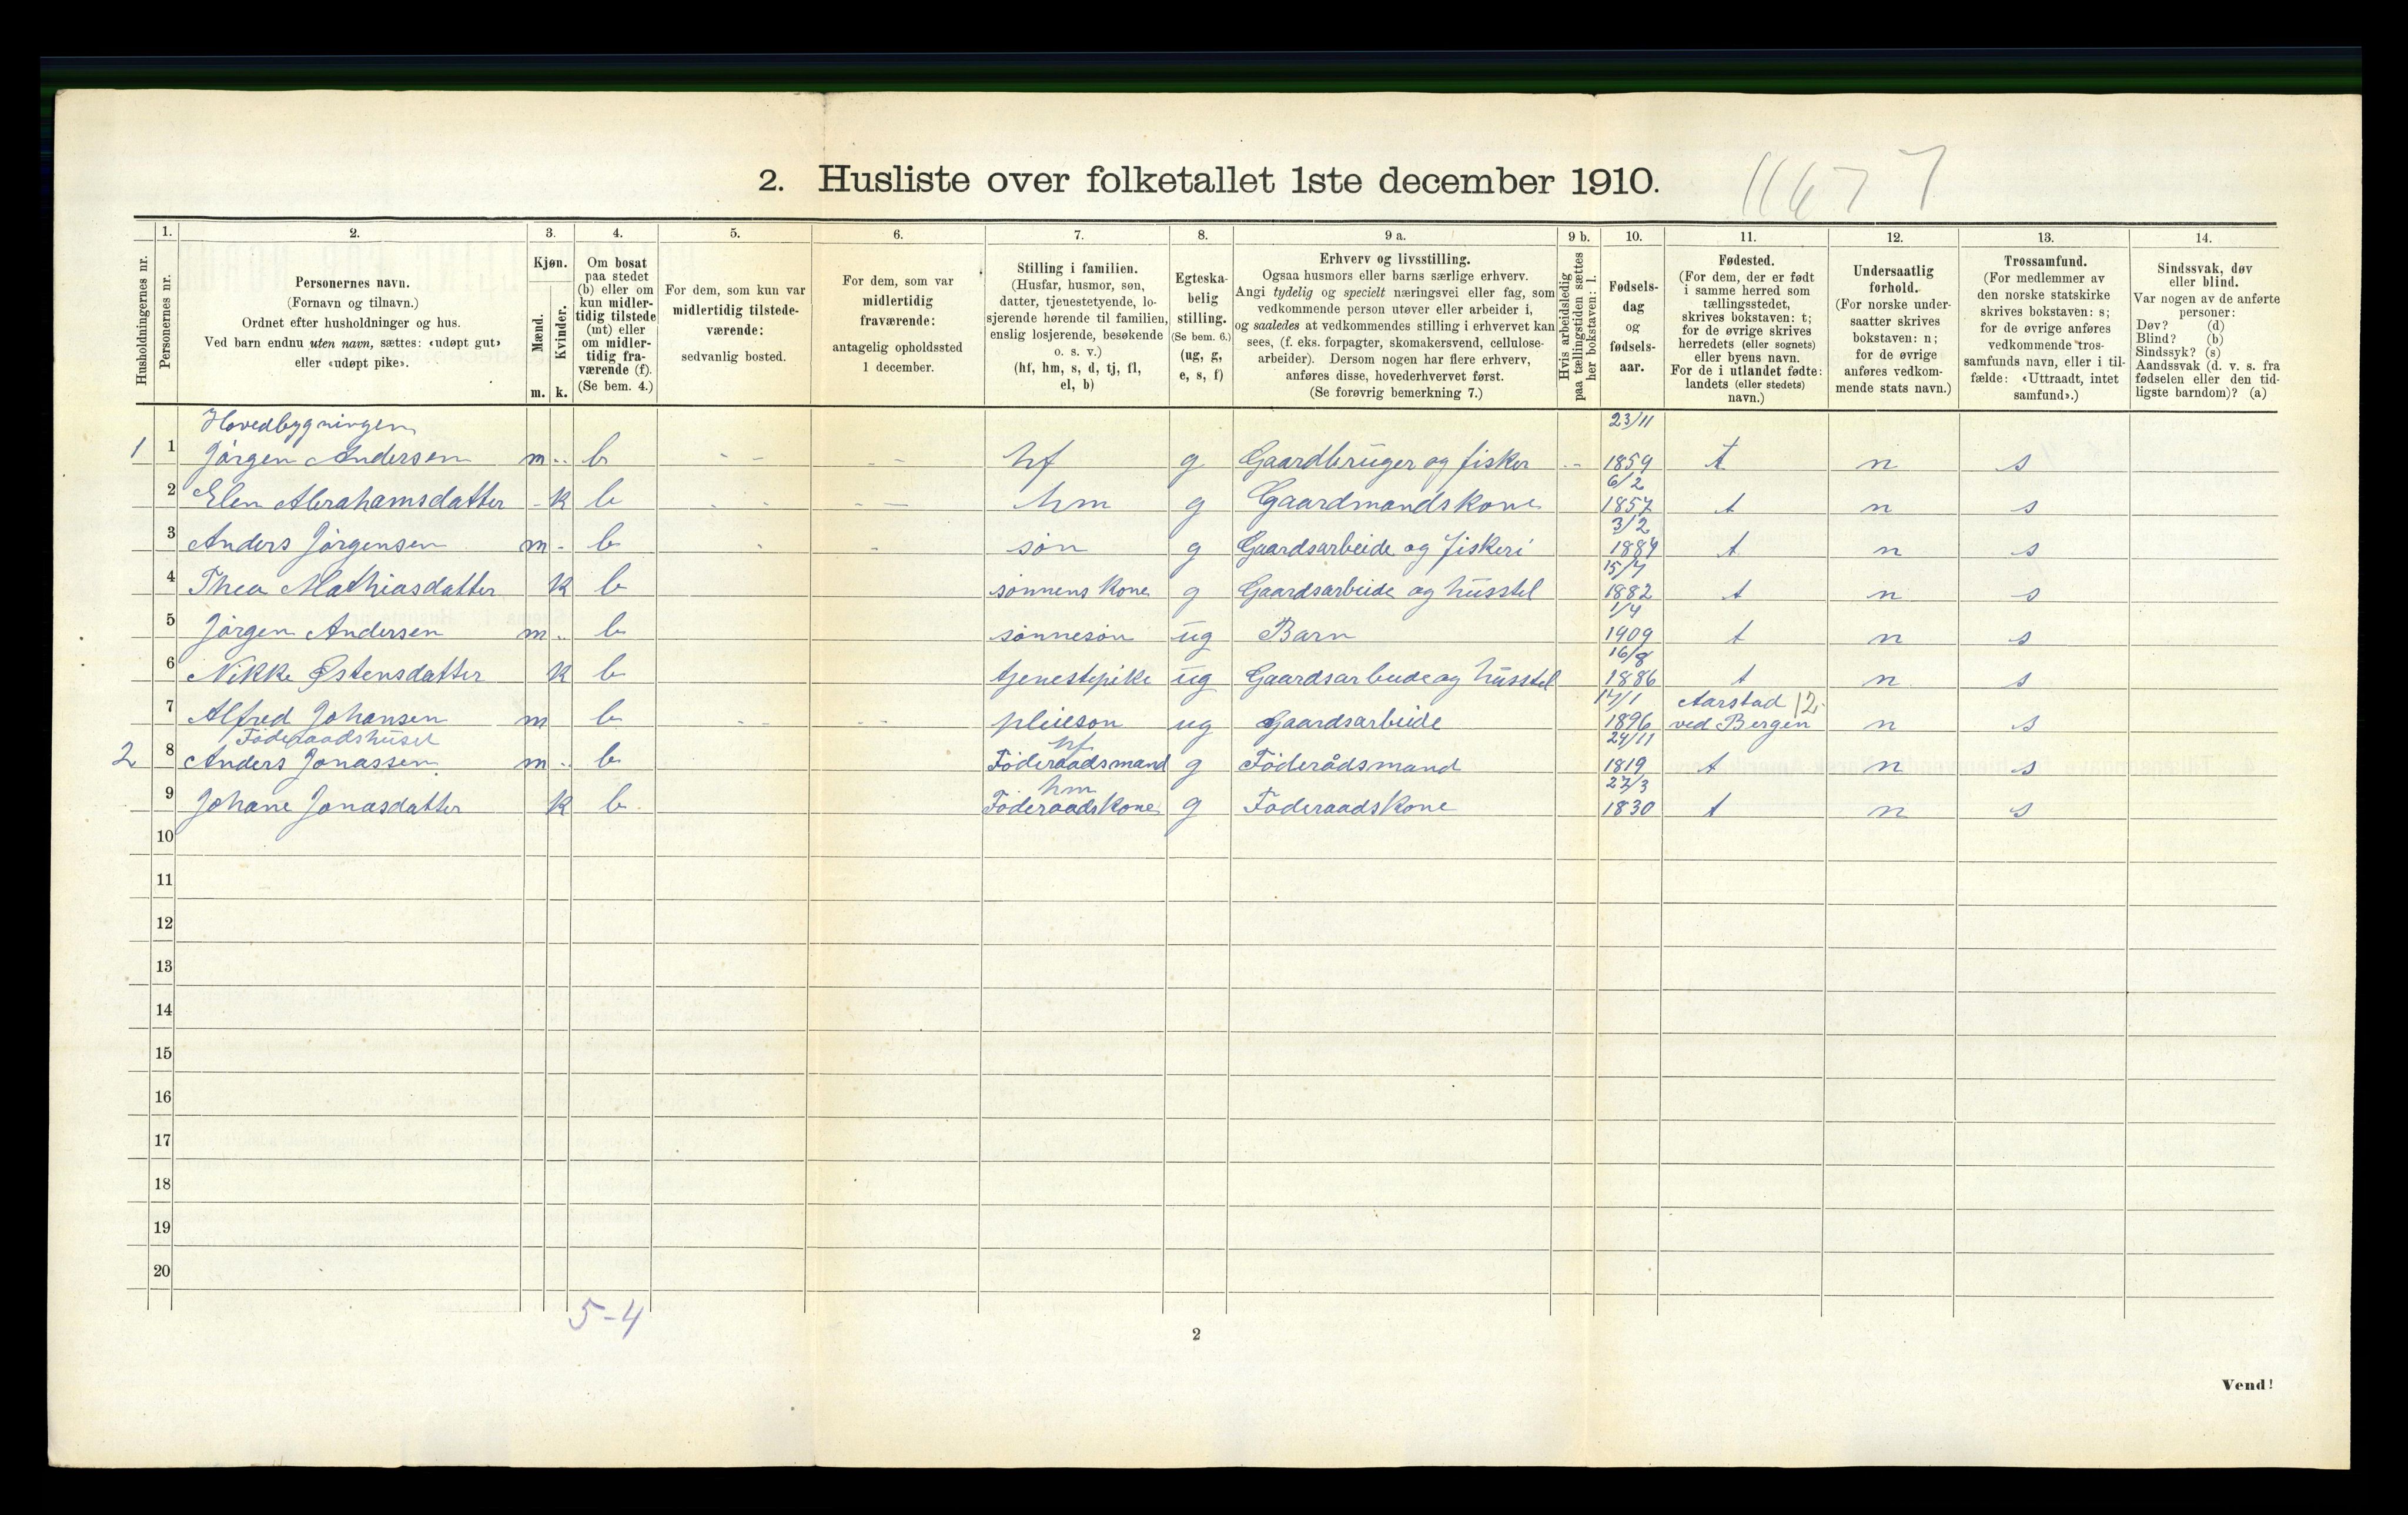 2. Husliste over folketallet 1ste december 1910.
1. 2. 3. 4. 5. 6. 7. 8. 9 a. 9 b. 10. 11. 12. 13. 14.
Husholdningernes nr.
Personernes nr.
Personernes navn.
(Fornavn og tilnavn.)
Ordnet efter husholdninger og hus.
Ved barn endnu uten navn, sættes: «udøpt gut»
eller «udøpt pike».
Kjøn.
Mænd.
Kvinder.
m. k.
Om bosat
paa stedet
(b) eller om
kun midler-
tidig tilstede
(mt) eller
om midler-
tidig fra-
værende (f).
(Se bem. 4.)
For dem, som kun var
midlertidig tilstede-
værende:
sedvanlig bosted.
For dem, som var
midlertidig
fraværende:
antagelig opholdssted
1 december.
Stilling i familien.
(Husfar, husmor, søn,
datter, tjenestetyende, lo-
sjerende hørende til familien,
enslig losjerende, besøkende
o. s. v.)
(hf, hm, s, d, tj, fl,
el, b)
Egteska-
belig
stilling.
(Se bem. 6.)
(ug, g,
e, s, f)
Erhverv og livsstilling.
Ogsaa husmors eller barns særlige erhverv.
Angi tydelig og specielt næringsvei eller fag, som
vedkommende person utøver eller arbeider i,
og saaledes at vedkommendes stilling i erhvervet kan
sees, (f. eks. forpagter, skomakersvend, cellulose-
arbeider). Dersom nogen har flere erhverv,
anføres disse, hovederhvervet først.
(Se forøvrig bemerkning 7.)
Hvis arbeidsledig
paa tællingstiden sættes
her bokstaven: l.
Fødsels-
dag
og
fødsels-
aar.
Fødested.
(For dem, der er født
i samme herred som
tællingsstedet,
skrives bokstaven: t;
for de øvrige skrives
herredets (eller sognets)
eller byens navn.
For de i utlandet fødte:
landets (eller stedets)
navn.)
Undersaatlig
forhold.
(For norske under-
saatter skrives
bokstaven: n;
for de øvrige
anføres vedkom-
mende stats navn.)
Trossamfund.
(For medlemmer av
den norske statskirke
skrives bokstaven: s;
for de øvrige anføres
vedkommende tros-
samfunds navn, eller i til-
fælde: «Uttraadt, intet
samfund».)
Sindssvak, døv
eller blind.
Var nogen av de anførte
personer:
Døv? (d)
Blind? (b)
Sindssyk? (s)
Aandssvak (d. v. s. fra
fødselen eller den tid-
ligste barndom)? (a)
Hovedbygningen 23/11
1 1 Jørgen Andersen m b hf g Gaardbruger og fisker 1859 t n s
6/2
2 Elen Abrahamsdatter k b hm g Gaardmandskone 1857 t n s
3/2
3 Anders Jørgensen m b søn g Gaardsarbeide og fiskeri 1884 t n s
4 Thea Mathiasdatter k b sønnens kone g Gaardsarbeide og husstel 1882 t n s
1/4
5 Jørgen Andersen m b sønnesøn ug Barn 1909 t n s
16/8
6 Nikke Østensdatter k b tjenestepike ug Gaardsarbeide og husstel 1886 t n s
17/1 Aarstad 12
7 Alfred Johansen m b pleiesøn ug Gaardsarbeide 1896 ved Bergen n s
Føderaadshuset hf 24/11
2 8 Anders Jonassen m b Føderaadsmand g Föderådsmand 1819 t n s
hm 27/3
9 Johane Jonasdatter k b Føderaadskone g Føderaadskone 1830 t n s
10
11
12
13
14
15
16
17
18
19
20
5-4
2
Vend!